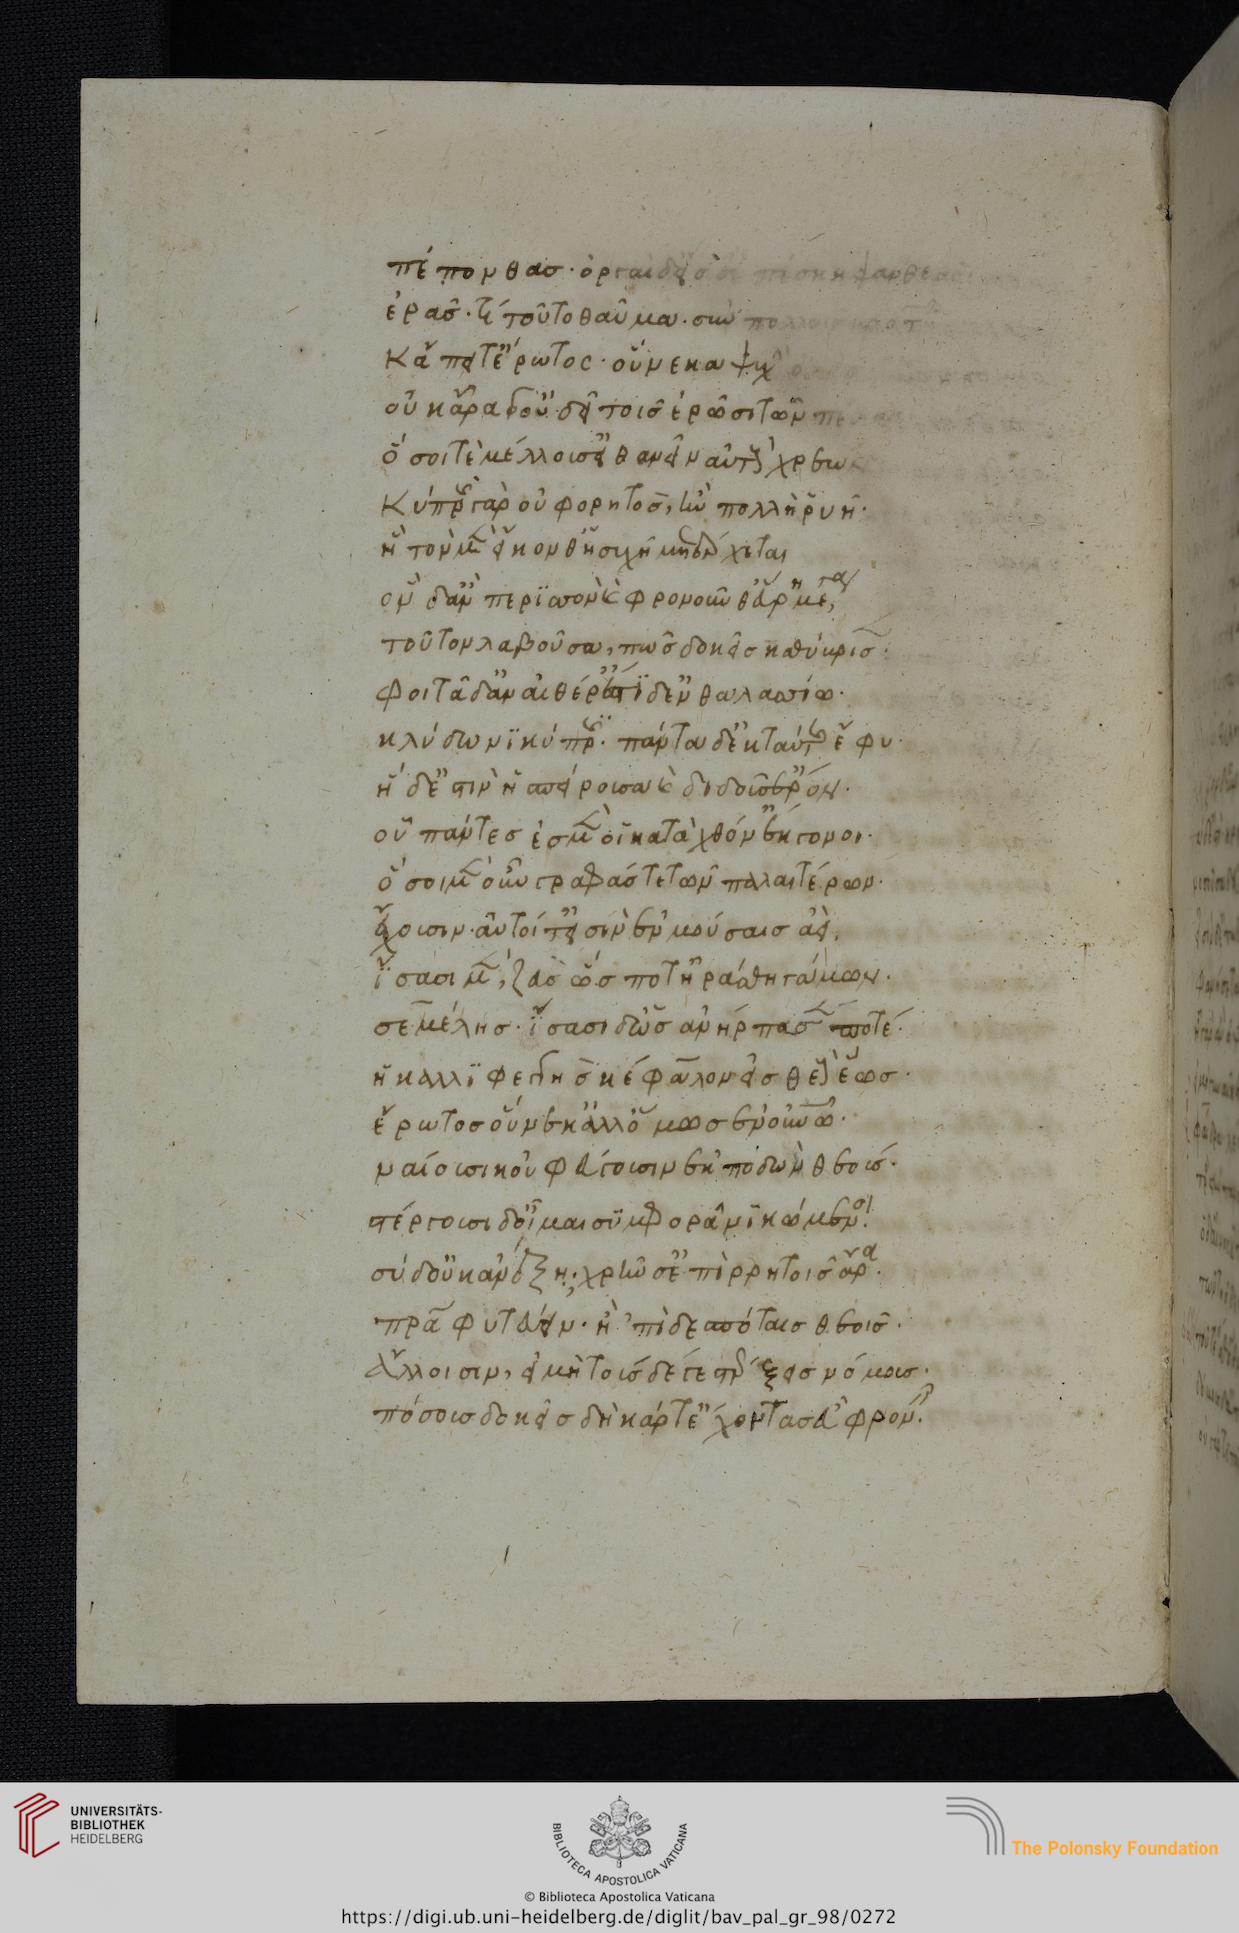 πέπονθας· ὀργαὶ δ' εἰς σ' ἐπέσκηψαν θεᾶς
ἐρᾶς· τί τοῦτο θαῦμα· σὺν πολλοῖς βροτῶν
κἄπειτ' ἔρωτος· οὕνεκα ψυχ
οὐκ ἆρα γ' οὐ δεῖ τοῖς ἐρῶσι τῶν πέ
ὅσοι τὲ μέλλουσ' εἰ θανεῖν αὐτοὺς χρεὼ
κύπρις γὰρ οὐ φορητὸς, ἢν πολλὴ ῥυῆ·
ἣ τὸν μὲν εἴκονθ' ἡσυχῆ μετέρχεται
ὃν δ' ἂν περισσὸν καὶ φρονοῦνθ' εὕρη μέγα,
τοῦτον λαβοῦσα, πῶς δοκεῖς καθύβρισε·
φοιτᾶ δ' ἀν' αἰθέρ' ἔστι δ' ἐν θαλασσίω·
κλύδωνι κύπρις· πάντα δ' ἐκ ταύτης ἔφυ·
ἥδ' ἐστὶν ἡ σπείρουσα καὶ διδοῦσ' ἔρον·
οὗ πάντες ἐσμὲν οἱ κατὰ χθόν' ἔκγονοι·
ὅσοι μὲν οὖν γραφάς τε τῶν παλαιτέρων·
ἔχουσιν· αὐτοί τ' εἰσὶν ἐν μούσαις ἀεὶ,
ἴσασι μὲν, ζεὺς ὥς ποτ' ἠράσθη γάμων·
σεμέλης· ἴσασι δ' ὡς ἀνήρπασέν ποτέ·
ἡ καλλιφεγγὴς κέφαλον εἰς θεοὺς ἕως·
ἔρωτος οὕνεκ' ἀλλ' ὅμως ἐν οὐρανῶ·
ναίουσι κοὐ φεύγουσιν ἐκποδὼν θεούς·
στέργουσι δ' οἶμαι συμφορᾶ νικώμενοι·
σὺ δ' οὐκ ἀνέξη; χρῆν σ' ἐπὶ ῥητοῖς ἄρα·
πρᾶ φυτεύειν· ἢ 'πὶ δεσπόταις θεοῖς·
ἄλλοισιν, εἰ μὴ τούσδε γε στέρξεις νόμους·
πόσους δοκεῖς δὴ κάρτ' ἔχοντας εὖ φρενῶν·
UNIVERSITÄTS-
BIBLIOTHEK
HEIDELBERG
BIBLIOTECA APOSTOLICA VATICANA
The Polonsky Foundation
© Biblioteca Apostolica Vaticana
https://digi.ub.uni-heidelberg.de/diglit/bav_pal_gr_98/0272